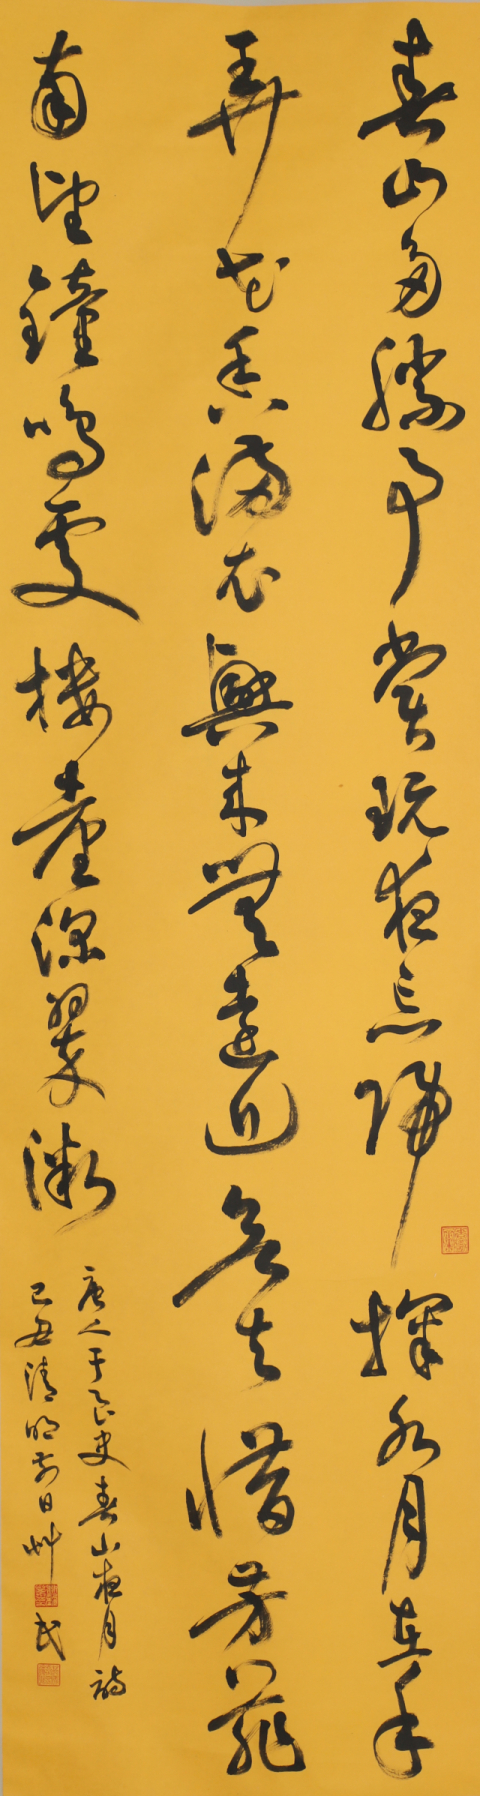 春山多勝事賞玩夜忘歸掬水月在手
弄花香滿衣興來無遠近欲去惜芳菲
南望鐘鳴處樓臺深翠微
唐人于良史春山夜月詩
己丑清明前日艸民